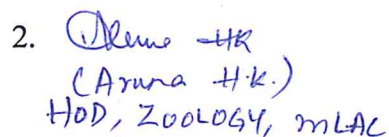 2. Aruna HK
(Aruna H.K.)
HOD, ZOOLOGY, mLAC